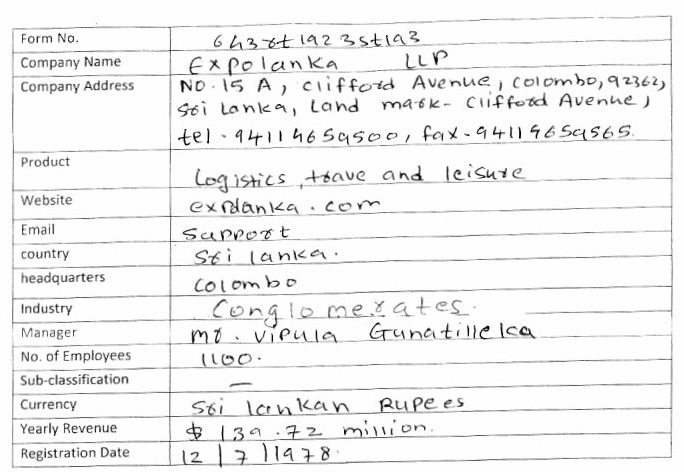 Form No. 643rt1923st193
Company Name Expolanka LLP
Company Address NO. 15 A, clifford Avenue, colombo, 92362,
Sri Lanka, Land mark- Clifford Avenue,
tel - 94114659500, fax - 94114659565.
Product Logistics, trave and leisure
Website expolanka.com
Email support
country Sri lanka.
headquarters colombo
Industry Conglomerates.
Manager mr. vipula Gunatilleka
No. of Employees 1100.
Sub-classification —
Currency Sri lankan Rupees
Yearly Revenue $ 139.72 million.
Registration Date 12/7/1978.